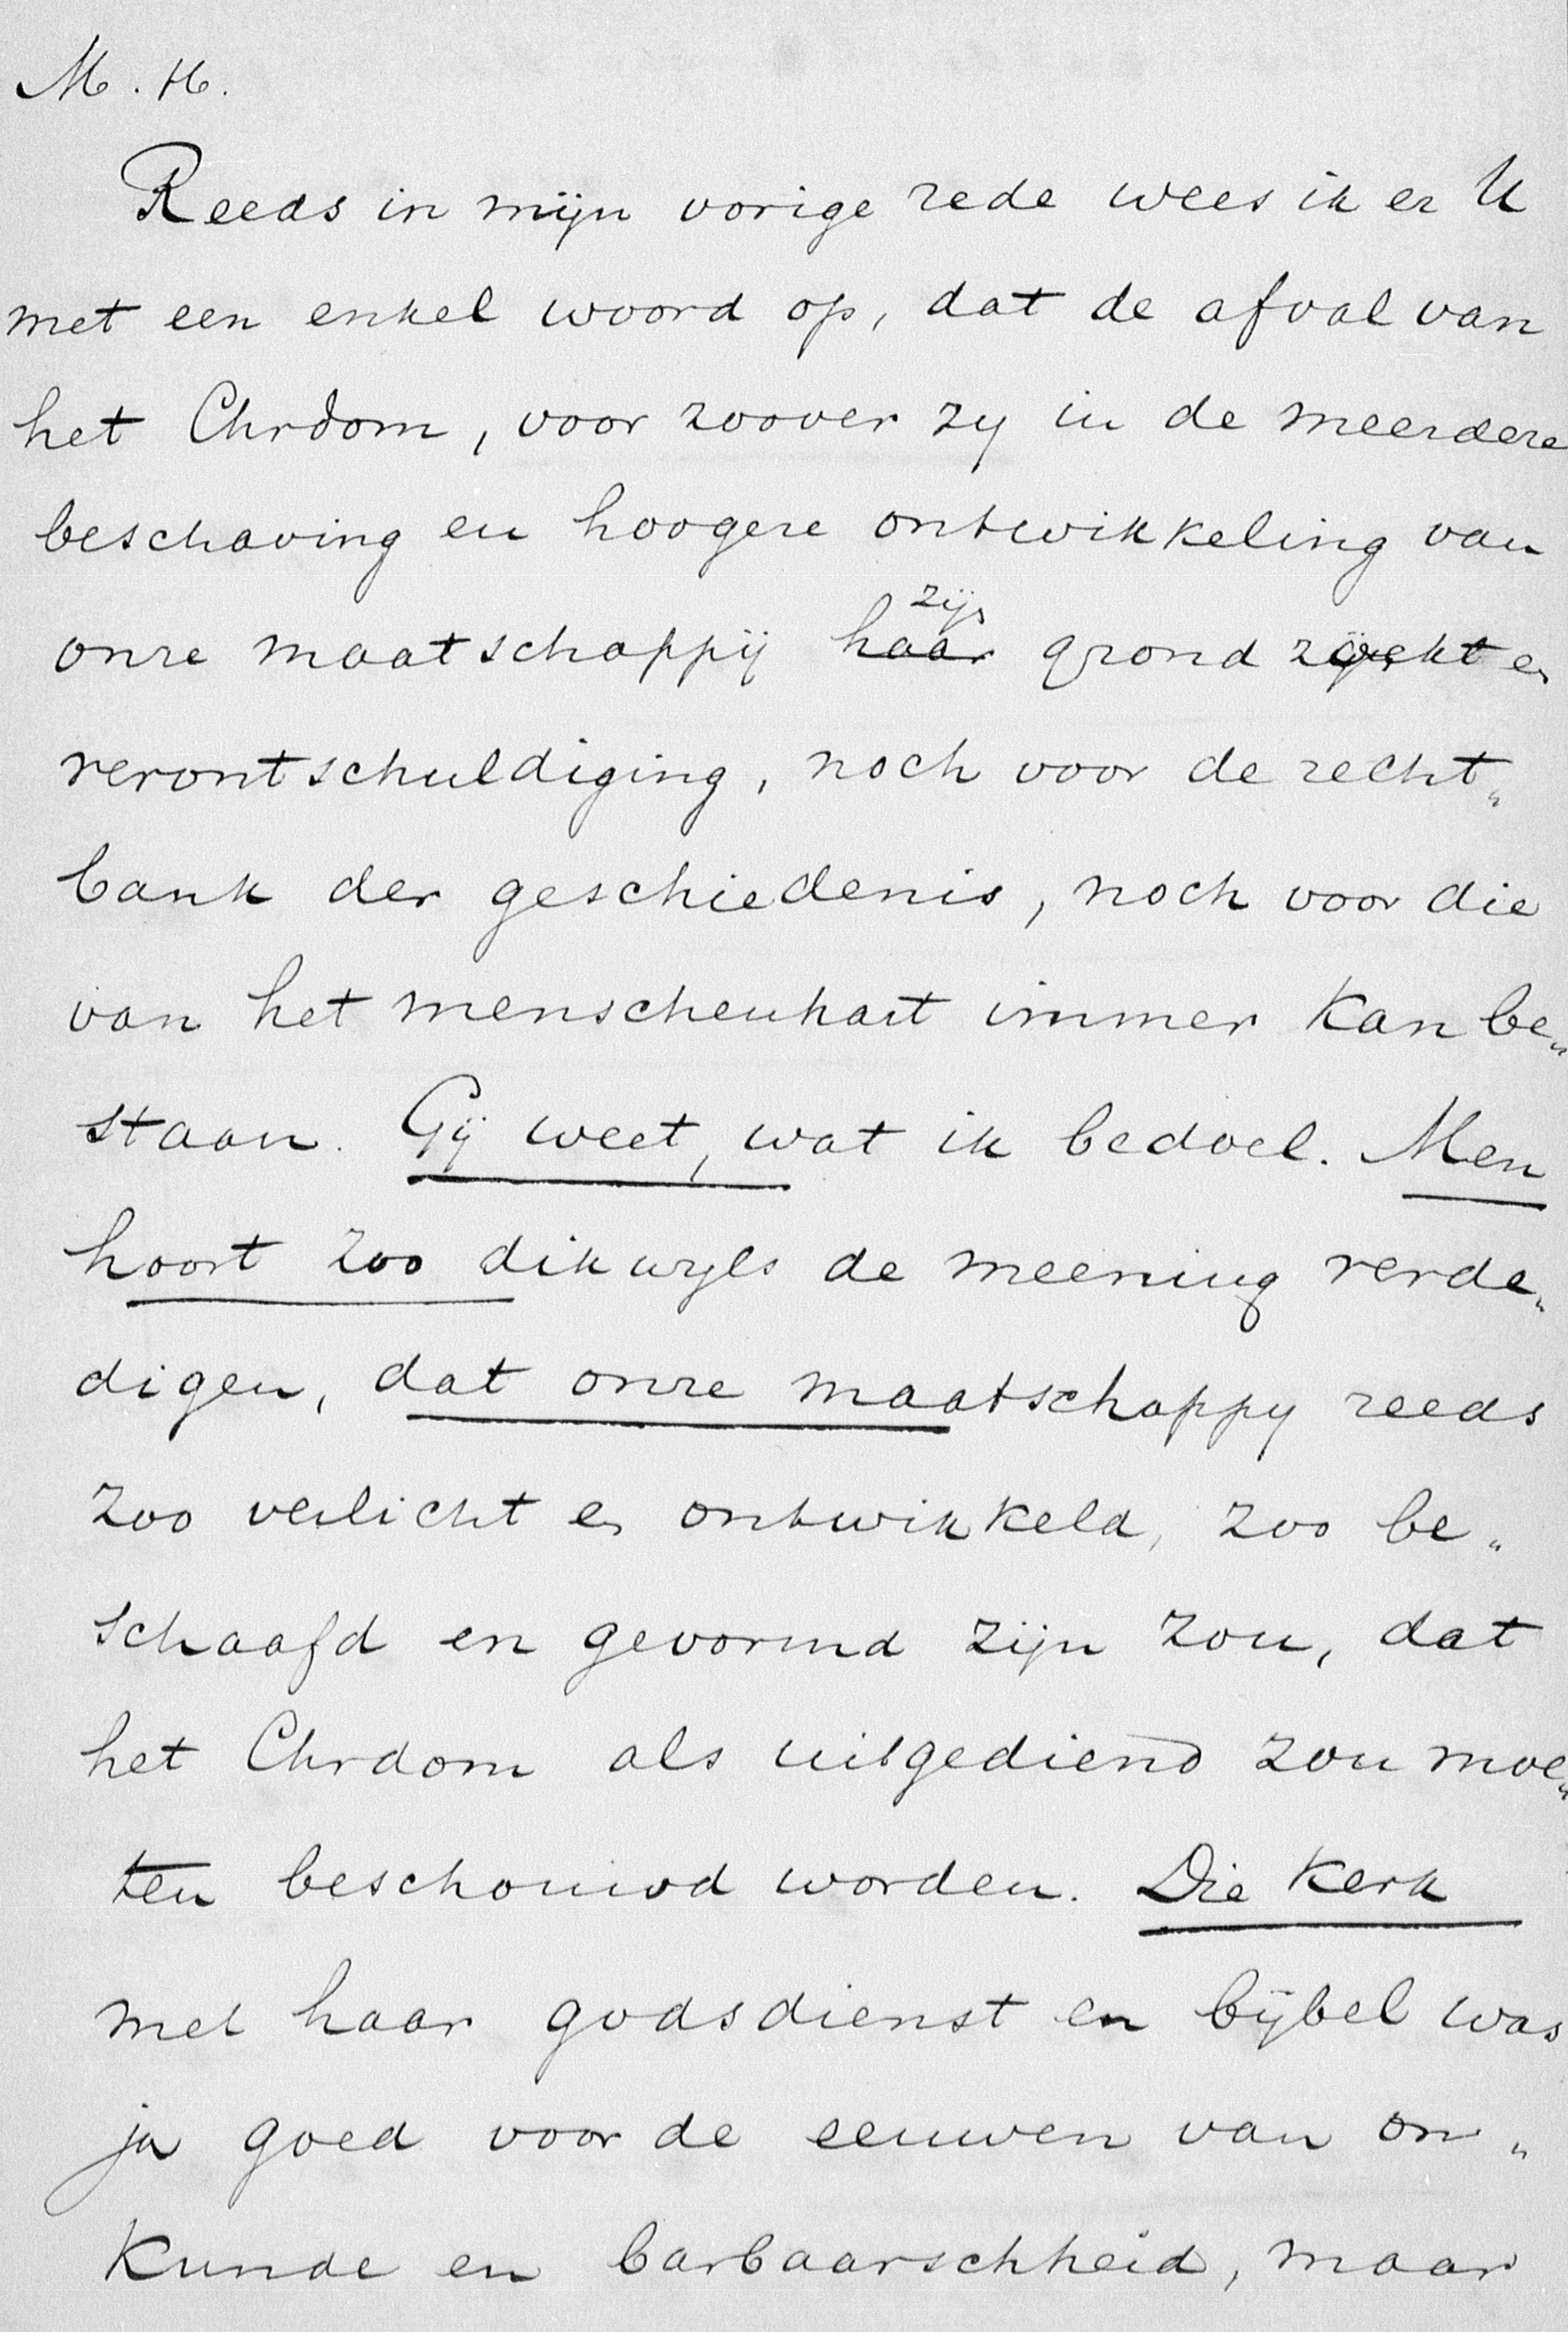 M. H.
Reeds in mijn vorige rede wees ik er U
met een enkel woord op, dat de afval van
het Chrdom, voor zoover zy in de meerdere
beschaving en hoogere ontwikkeling van
zijn
onze maatschappij haar grond zoekt en
verontschuldiging, noch voor de recht„
bank der geschiedenis, noch voor die
van het menschenhart immer kan be„
staan. Gij weet, wat ik bedoel. Men
hoort zoo dikwyls de meening verde„
digen, dat onze maatschappy reeds
zoo verlicht en ontwikkeld, zoo be„
schaafd en gevormd zijn zou, dat
het Chrdom als uitgediend zou moe„
ten beschouwd worden. Die Kerk
met haar godsdienst en bijbel was
ja goed voor de eeuwen van on„
kunde en barbaarschheid, maar